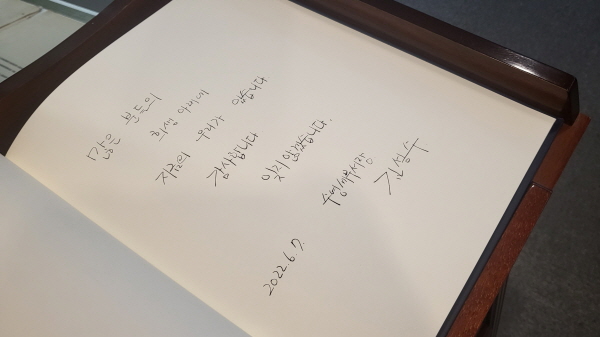 많은 분들의
희생 아래에
지금의 우리가 있습니다
감사합니다
잊지 않겠습니다.
수영세무서장
김성수
2022. 6. 7.